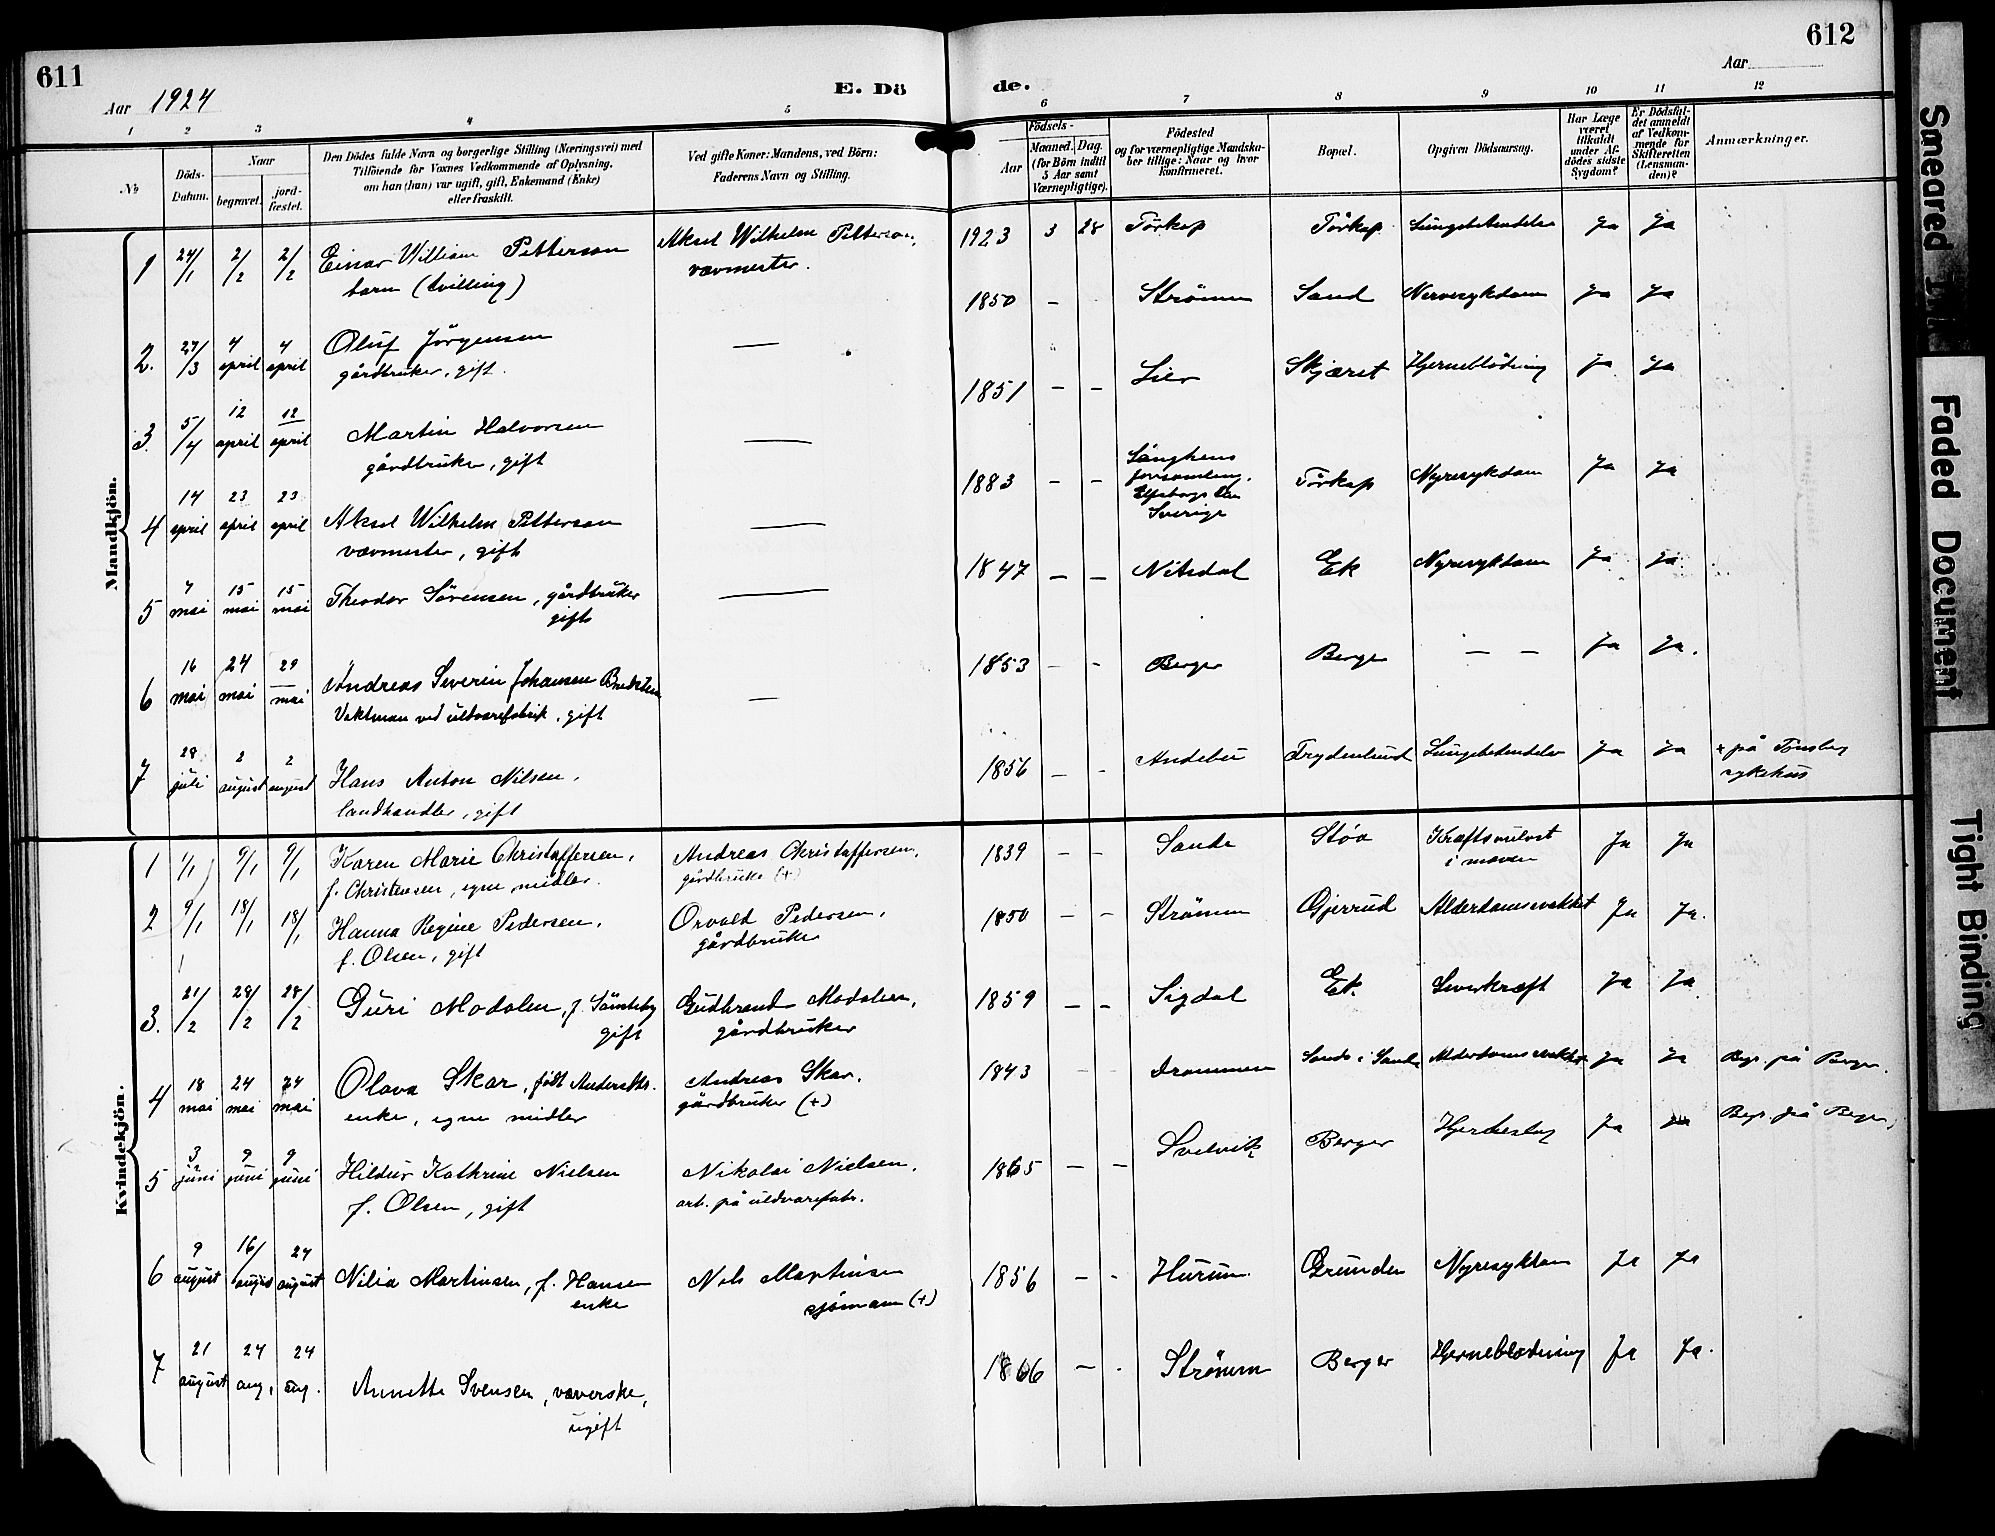 611
Aar 1924
E. Dö
1 2 3 4 5
No
Döds-
Datum.
Naar
begravet.
jord-
fæstet.
Den Dödes fulde Navn og borgerlige Stilling (Næringsvei) med
Tilföiende for Voxnes Vedkommende af Oplysning,
om han (hun) var ugift, gift, Enkemand (Enke)
eller fraskilt.
Ved gifte Koner: Mandens, ved Börn:
Faderens Navn og Stilling.
Mandkjön.
1 24/1 2/2 2/2 Einar William Petterson Aksel Wilhelm Petterson,
barn (tvilling) vævmester.
2. 27/3 4 april 4 april Oluf Jörgensen —
gårdbruker, gift.
3. 5/4 12 april 12 april Martin Halvorsen —
gårdbruker, gift
4 14 april 23 april 23 april Aksel Wilhelm Petterson —
vævmester, gift
5 7 mai 15 mai 15 mai Theodor Sörensen, gårdbruker —
gift
6 16 mai 24 mai 29 mai Andreas Severin Johansen —
Vaktman ved uldvarefabrik, gift
7 28 juli 2 august 2 august Hans Anton Nilsen,
landhandler, gift
Kvindekjön.
1 1/1 9/1 9/1 Karen Marie Christoffersen, Andreas Christoffersen,
f. Christensen, egne midler. gårdbruker (+)
2 9/1 18/1 18/1 Hanna Regine Pedersen, Orvald Pedersen,
f. Olsen, gift gårdbruker
3. 21/2 28/2 28/2 Guri Modalen, f. Gudbrand Modalen,
gift gårdbruker
4 18 mai 24 mai 24 mai Olava Skar, født Andreas Skar,
enke, egne midler gårdbruker (+)
5 3 juni 9 juni 9 juni Hildur Kathrine Nielsen Nikolai Nielsen,
f. Olsen, gift arb. på uldvarefabr.
6 9 august 16/ august 24 august Nilia Martinsen, f. Hansen Nils Martinsen
enke sjömann (+)
7 21 august 24 aug. 24 aug. Annette Svensen, væverske,
ugift
612
Aar
de.
6 7 8 9 10 11 12
Födsels-
Aar
Maaned. Dag.
(for Börn indtil
5 Aar samt
Værnepligtige).
Födested
og for værnepligtige Mandska-
ber tillige: Naar og hvor
konfirmeret.
Bopæl.
Opgiven Dödsaarsag.
Har Læge
været
tilkaldt
under Af-
dödes sidste
Sygdom?
Er Dödsfal-
det anmeldt
af Vedkom-
mende for
Skifteretten
(Lensman-
den)?
Anmærkninger.
1923 3 28 Törkop Törkop Lungebetendelse Ja Ja
1850 - - Strömm Sand Nervesykdom Ja Ja
1851 - - Lier Skjæret Hjerneblödning Ja Ja
1883 - - Länghems
forsamling,
Elfsborgs län
Sverige
Törkop Nyresykdom Ja Ja
1847 - - Nitedal Ek Nyresykdom Ja Ja
1853 - - Berger Berger — — Ja Ja.
1856 - - Andebu Frydenlund Lungebetendelse Ja Ja + på Tönsberg
sykehus
1839 - - Sande Stöa Kræftsvulst
i maven
Ja Ja
1850 - - Strömm Gjerrud Alderdomssvakhet Ja Ja.
1859 - - Sigdal Ek. Leverkræft Ja Ja
1843 - - Drammen Sande i Sande Alderdomssvakhet Ja Ja Begr. på Berger.
1865 - - Svelvik Berger Hjerteslag Ja Ja Begr. på Berger,
1856 - - Hurum Grunden Nyresykdom Ja Ja
1866 - - Strömm Berger Hjerneblödning Ja Ja.
Smeared
Faded Document
Tight Binding